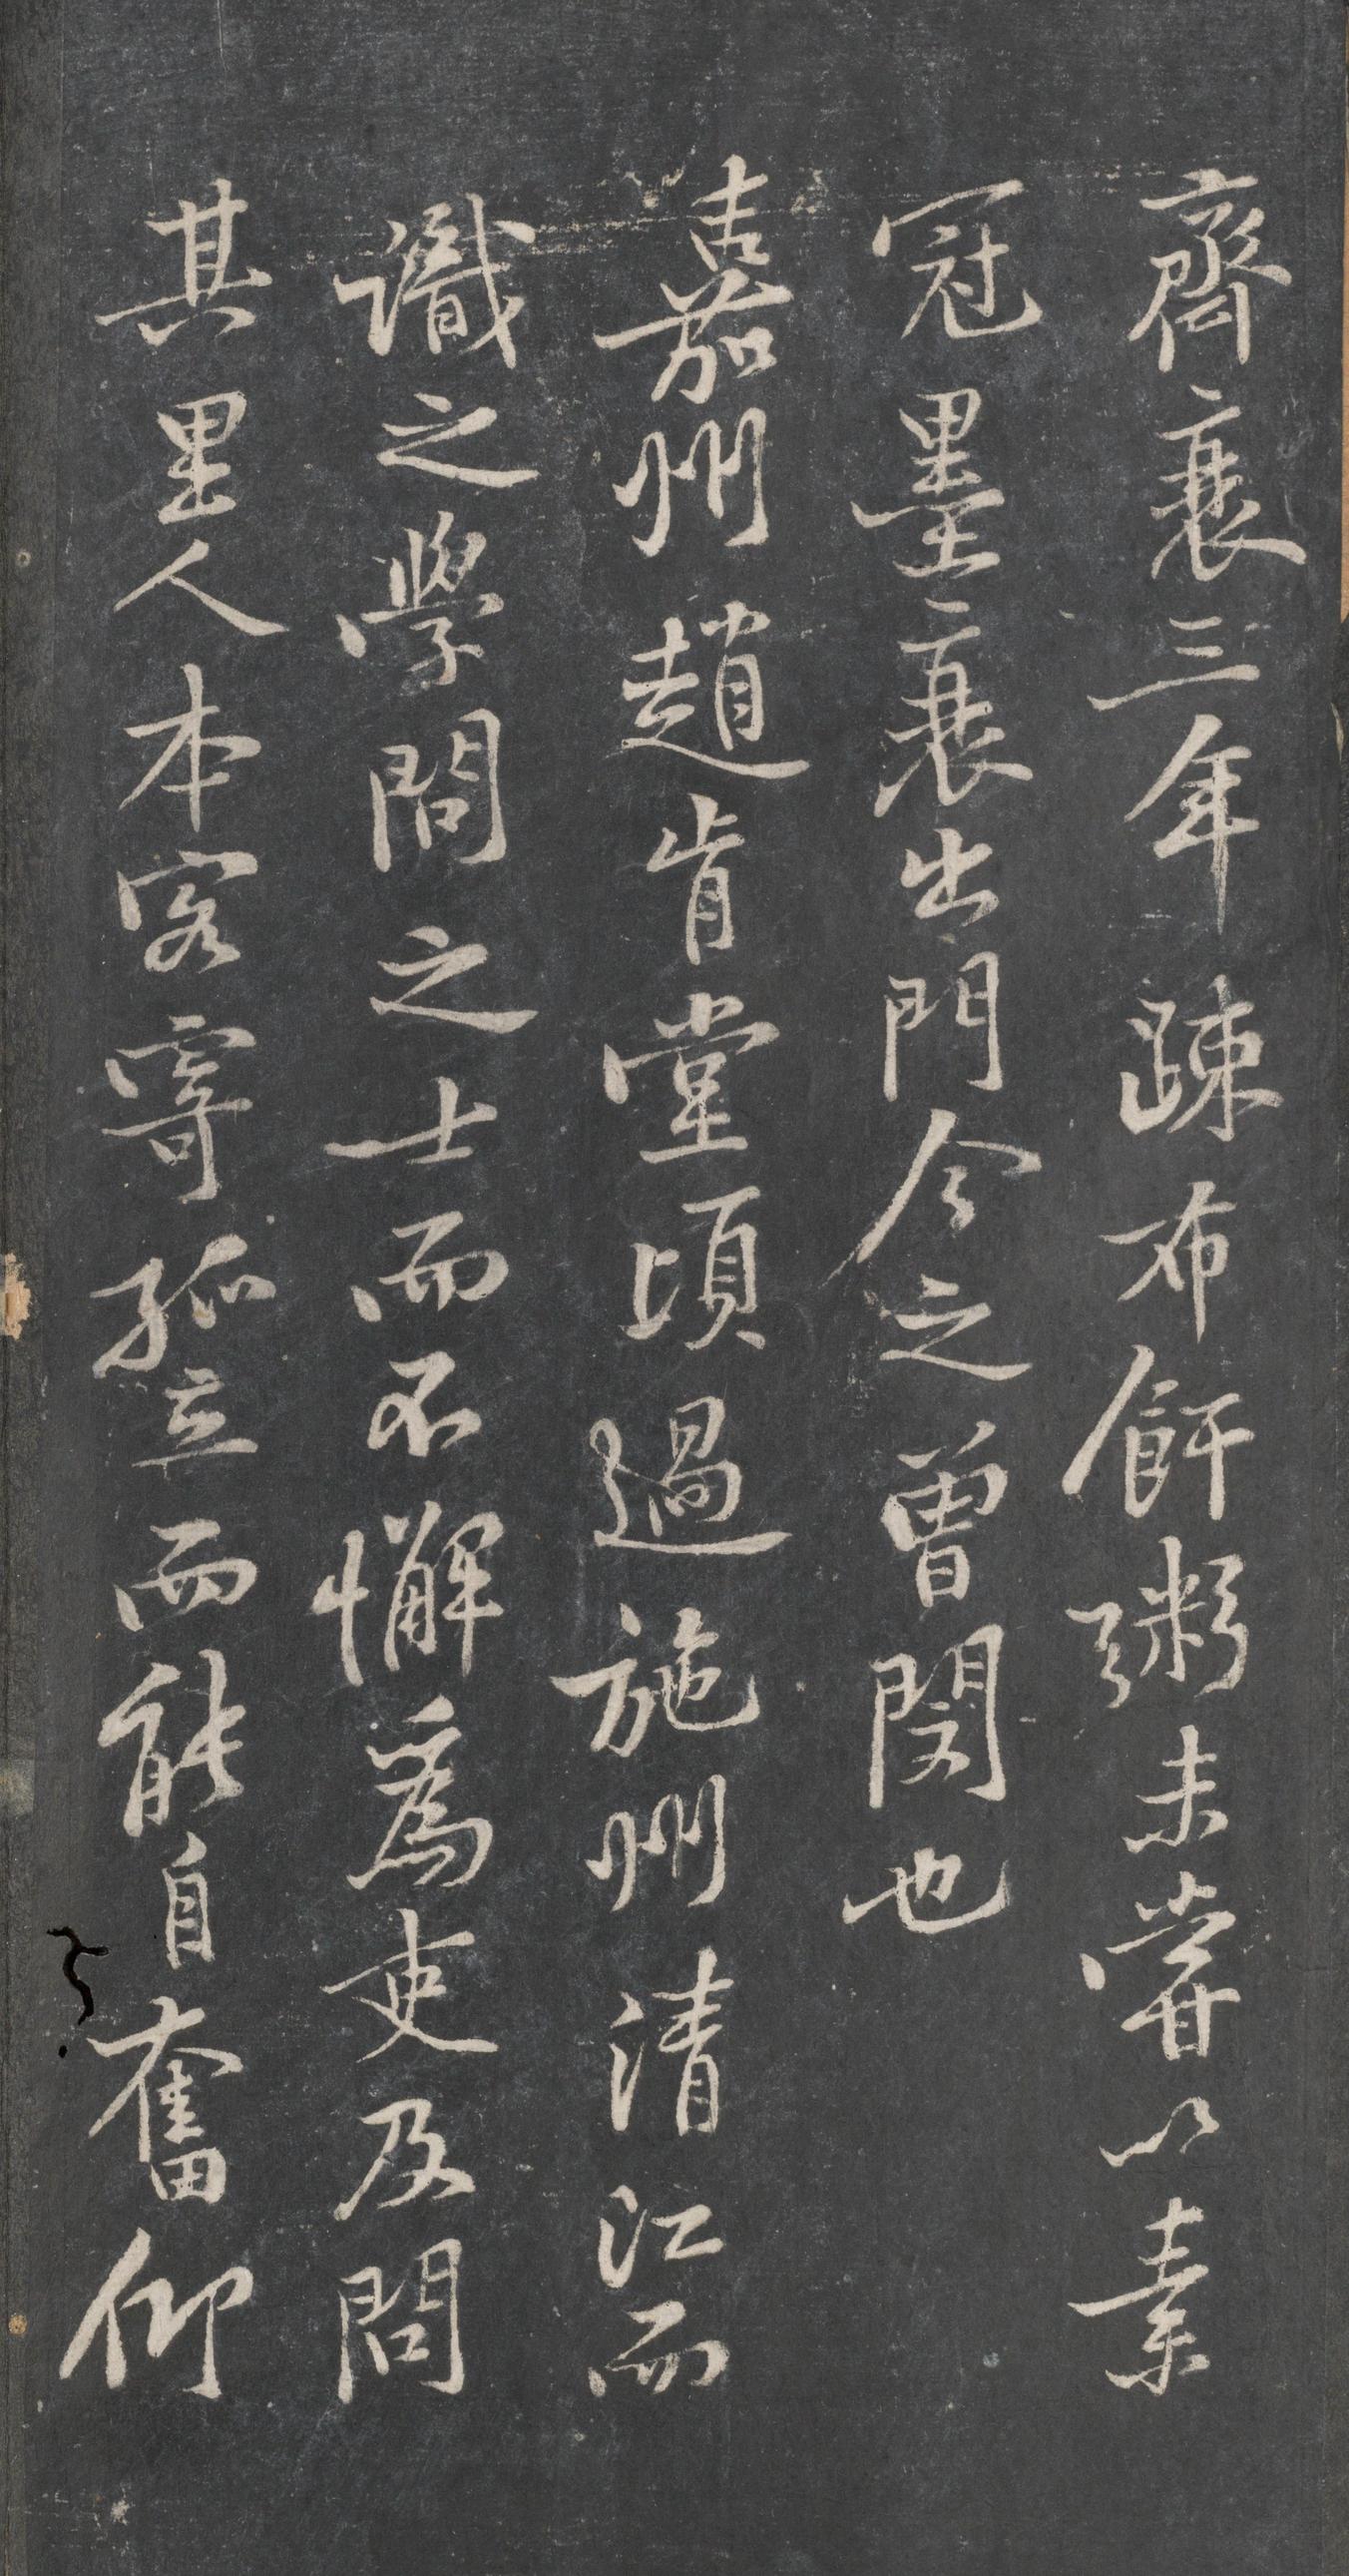 齊衰三年疎布飦粥未嘗以素
冠墨衰出門今之曾閔也
嘉州趙肯堂頃過施州清江而
識之學問之士而不懈爲吏及問
其里人本客寄孤立而能自奮仰